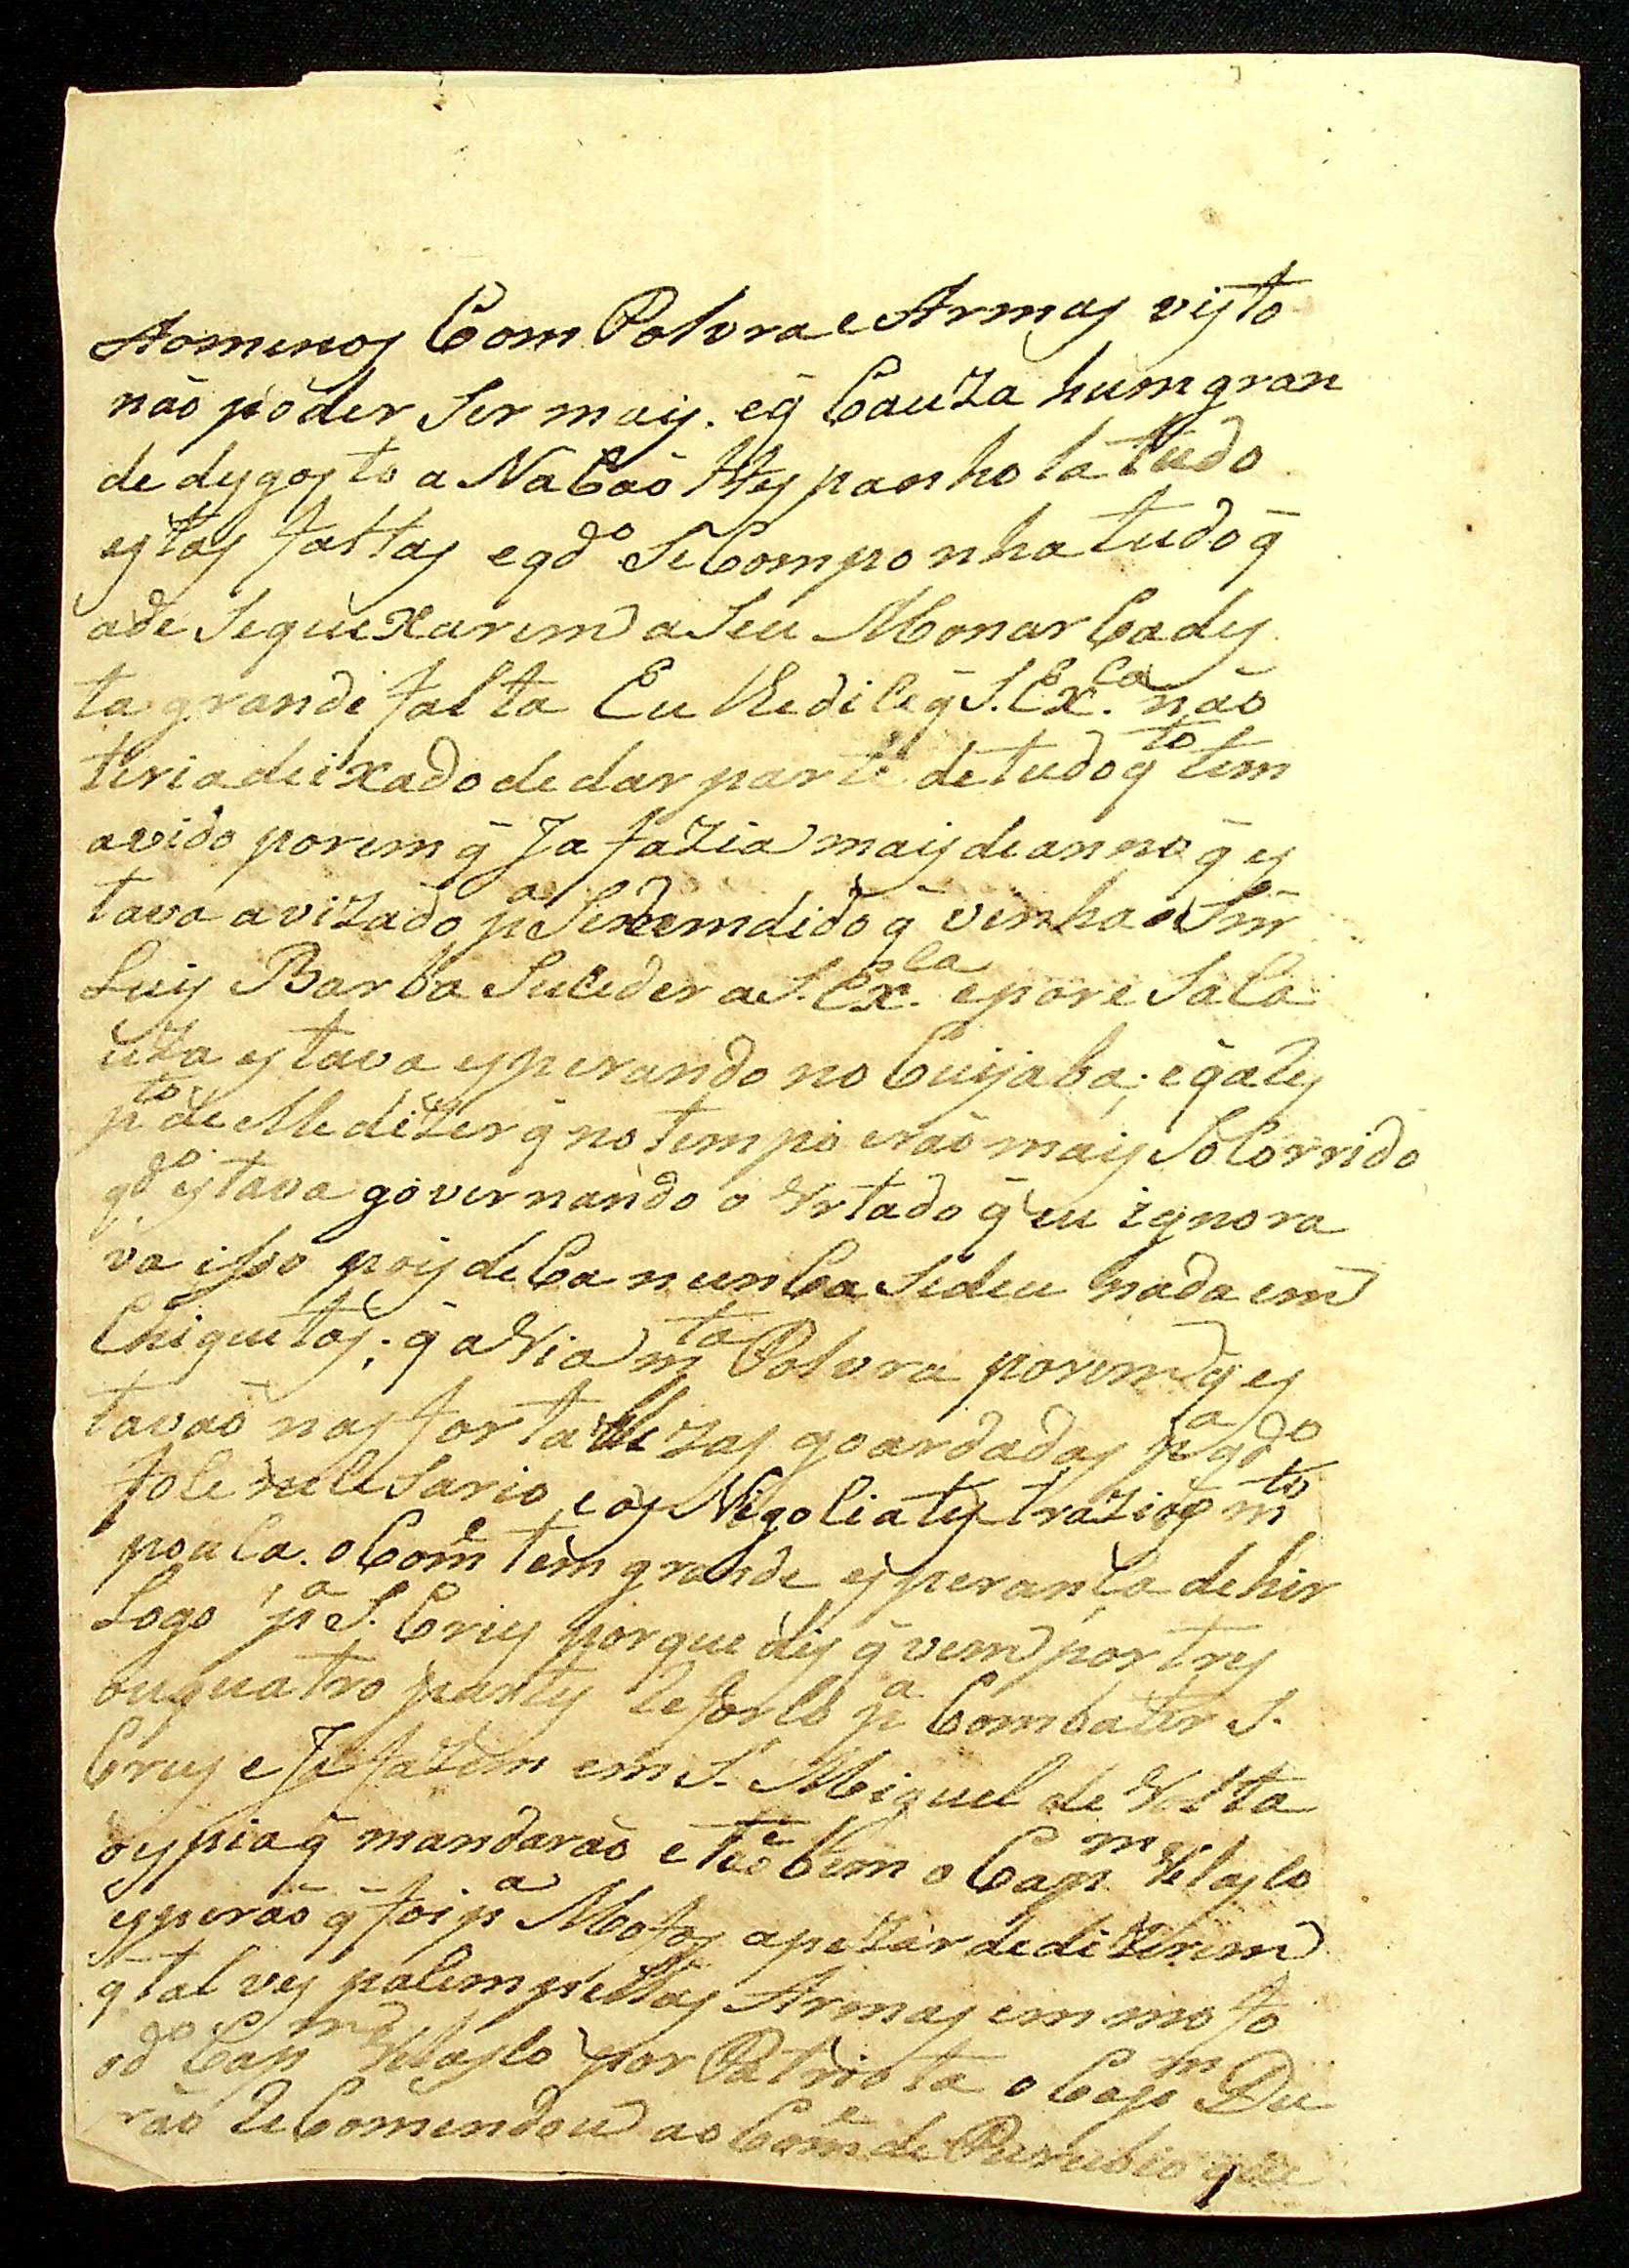 Aomenos Com Polvra e Armas visto
não poder Ser mais. eq̃ Cauza hum gran
de dysgosto a NaCaõ Hespanhola tudo
estas faltas eqdo SeComponha tudo q̃
ade SequeXarem aSeu MonarCa des
ta grande falta Eu lhedice q̃ S. Exca. não
teria deixado de dar parte de tudo qto tem
avido porem q̃ Ja fazia mais de anno q̃ es
tava avizado pa Serem didido q̃ vinha o Snr̃
Luis Barba Suceder aS. Exca. epore SaCa
uza estava esperando no Cuijaba; eq̃ ates
pto de Me dizer q̃ no tempo eraõ mais SoCorrido
qdo estava governando o Urtado q̃ eu ignora
va isso pois deCa nunCa Sedeu nada em
Chiquitos; q̃ aVia mta Polvra porem q̃ es
tavaõ nas fortallezas goardadas pa qdo
foce neceSario e os Negociates traziaõ mto
poaca. o Come tem grande esperança de hir
Logo pa S. Crus porque dis q̃ vem por tres
ou quatro partes reforço pa Combater S.
Crus e Ja fazem em S. Miguel de Volta
ospia q̃ mandaraõ e tẽ bem o Capm Velasco
esperaõ q̃ foi pa Mofos apezar de dizerem
q̃ talves pacem pellas Armas em mofo
odo Capm Velasco por Patriota o Capm Du
raõ ReComendou ao Come de Purubio que